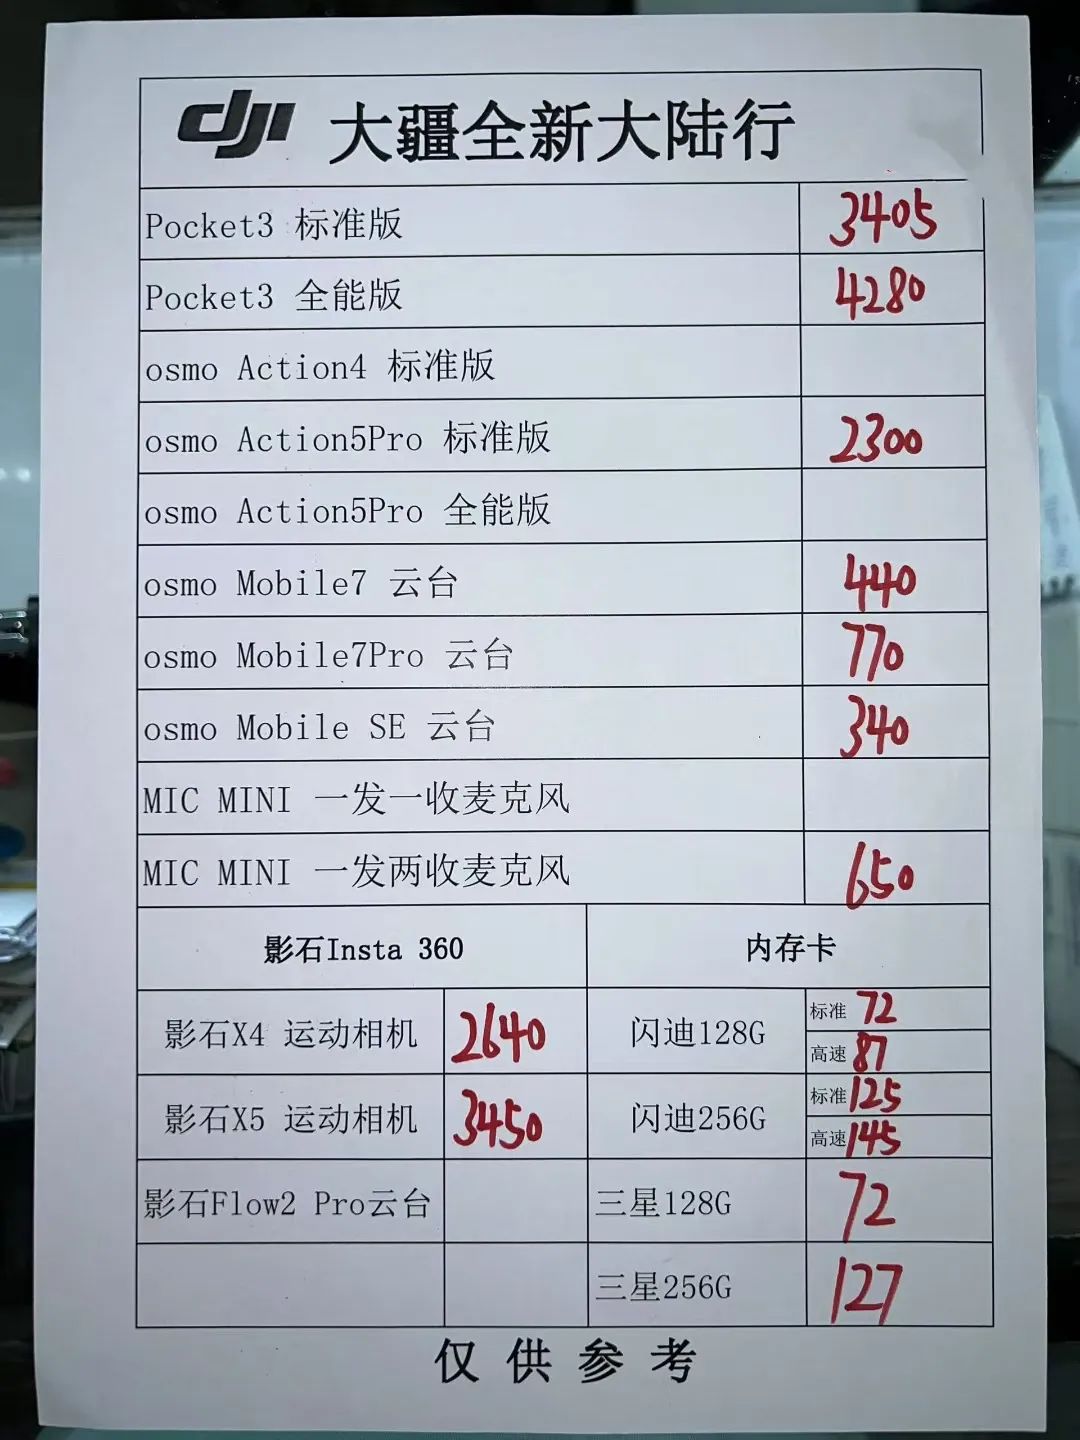 dji 大疆全新大陆行
Pocket3 标准版 3405
Pocket3 全能版 4280
osmo Action4 标准版
osmo Action5Pro 标准版 2300
osmo Action5Pro 全能版
osmo Mobile7 云台 440
osmo Mobile7Pro 云台 770
osmo Mobile SE 云台 340
MIC MINI 一发一收麦克风
MIC MINI 一发两收麦克风 650
影石Insta 360 内存卡
影石X4 运动相机 2640 闪迪128G 标准 72
高速 87
影石X5 运动相机 3450 闪迪256G 标准 125
高速 145
影石Flow2 Pro云台 三星128G 72
三星256G 127
仅供参考